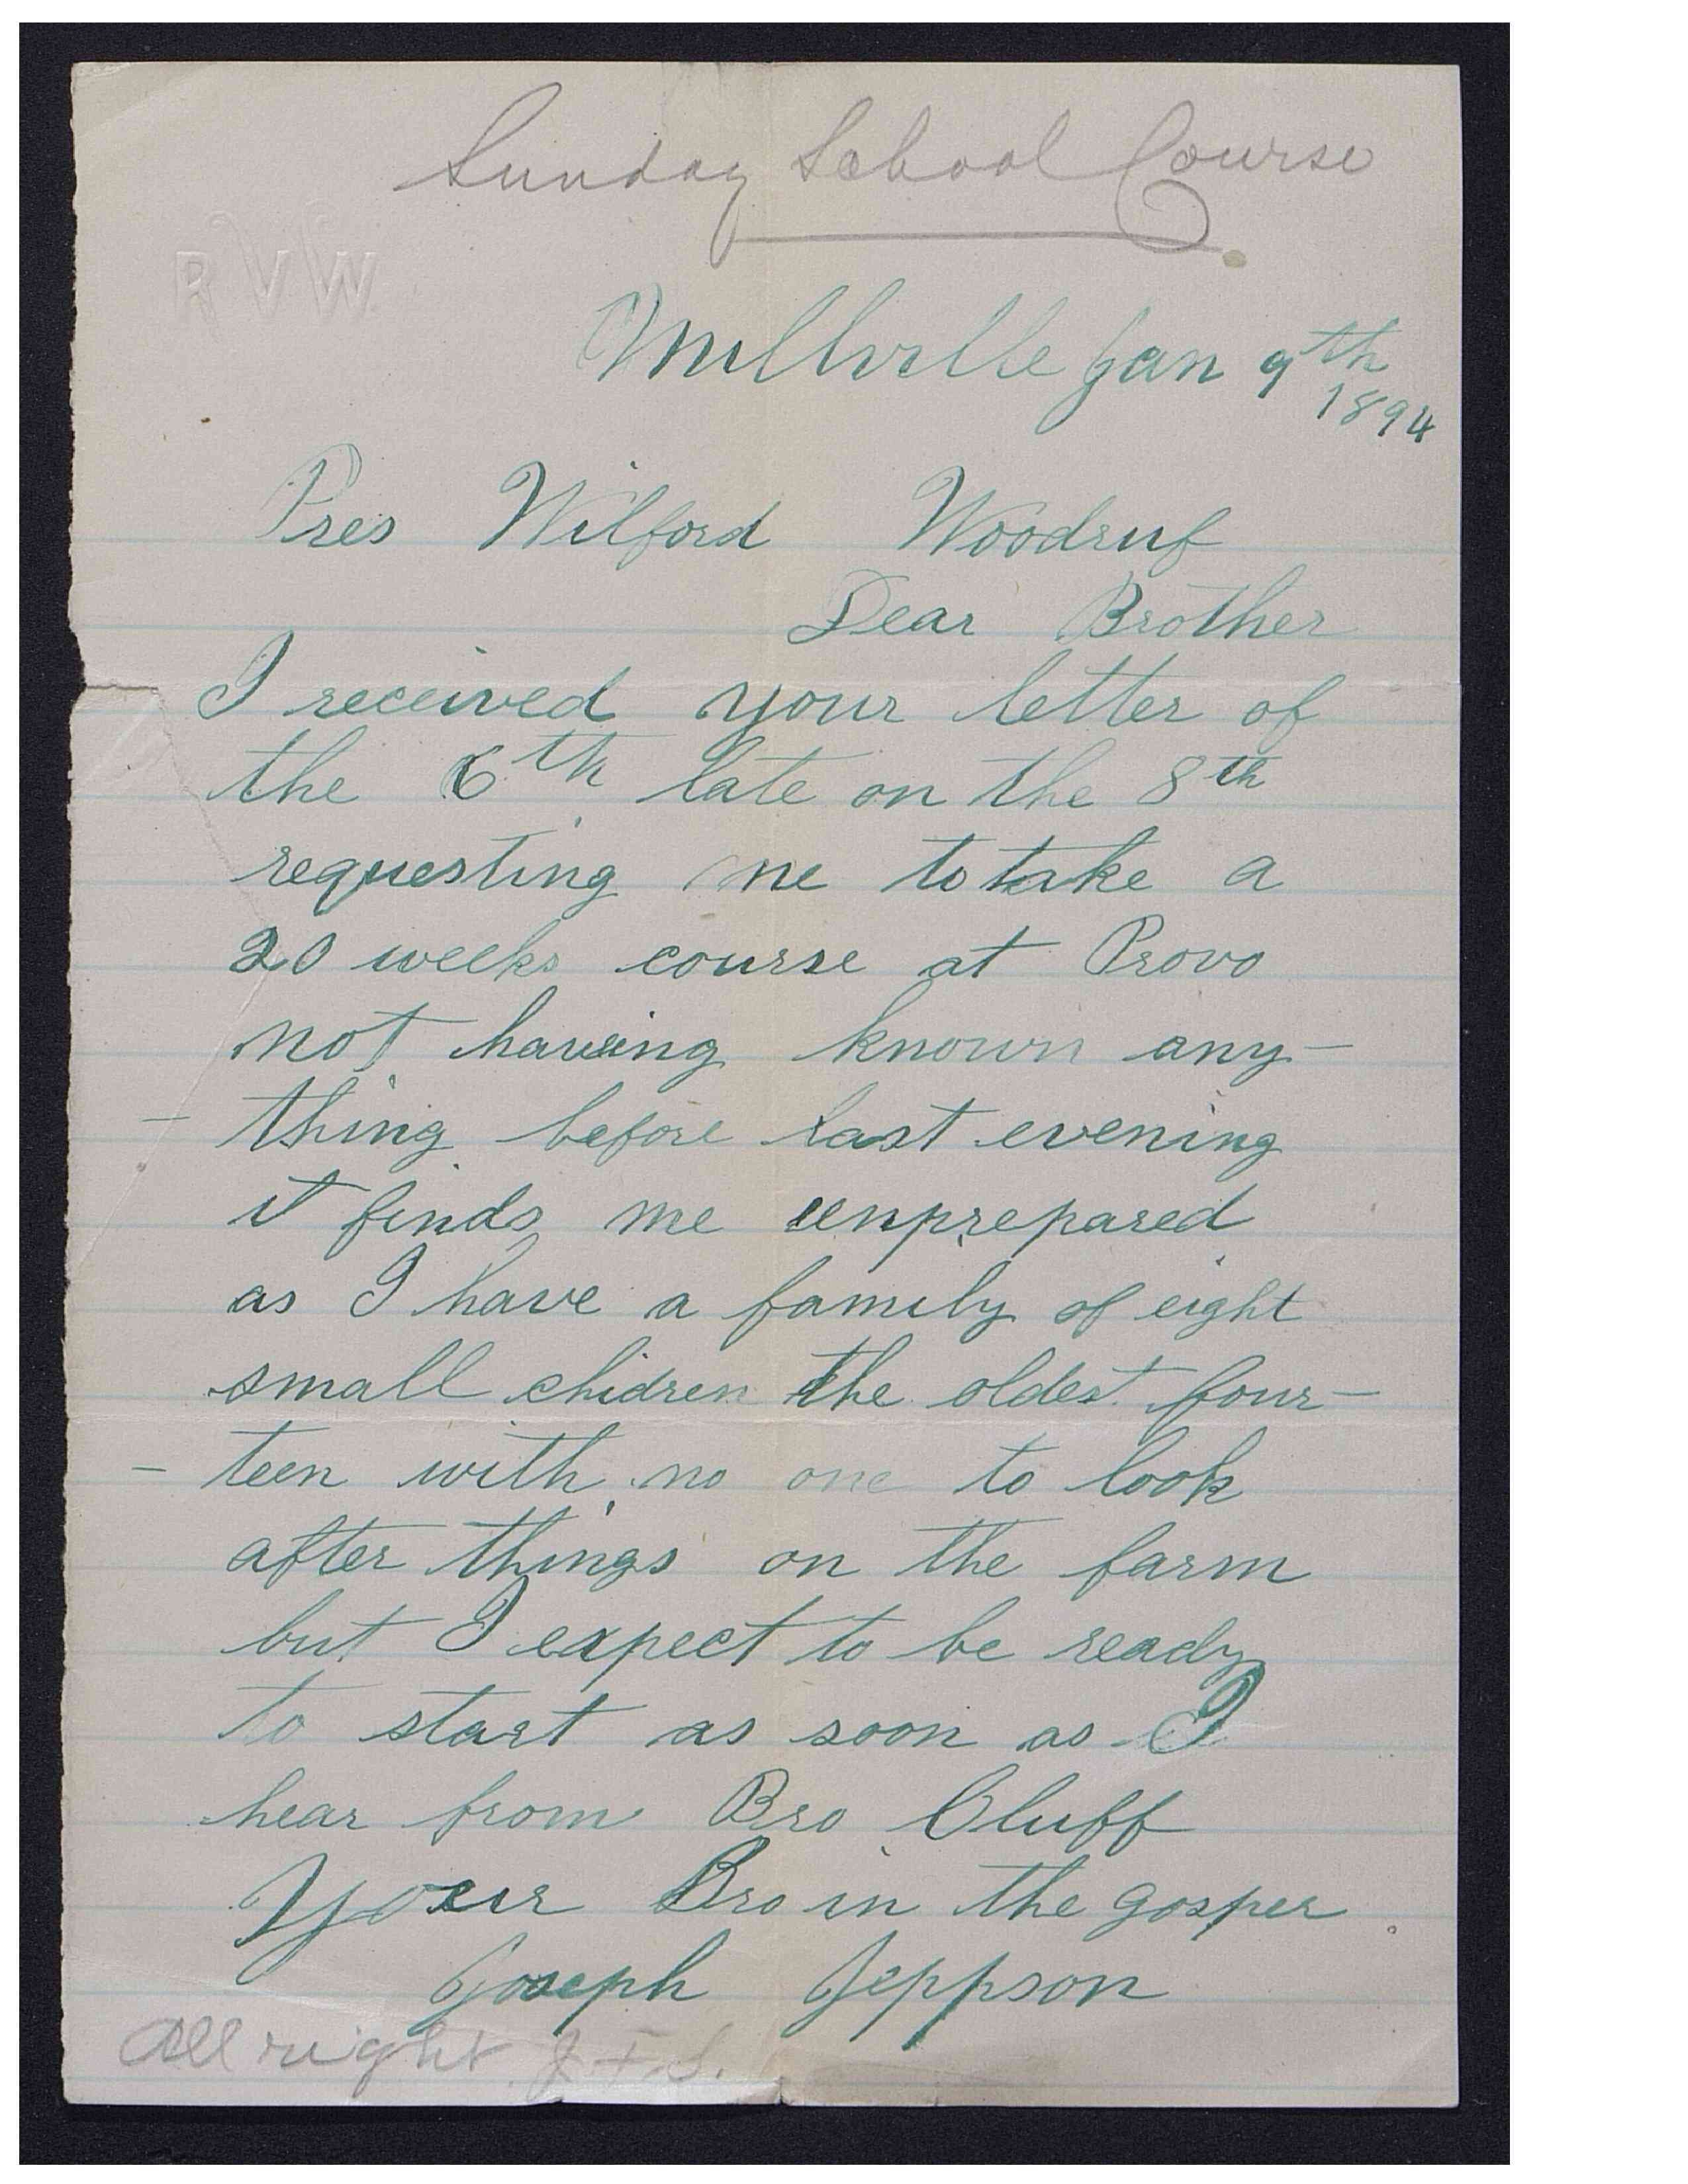 Sunday School Course
R V W.
Millville Jan 9th
1894
Pres Wilford Woodruf
Dear Brother
I received your letter of
the 6th late on the 8th
requesting me to take a
20 weeks course at Provo
not having known any-
- thing before last evening
it finds me unprepared
as I have a family of eight
small chidren the oldest four-
- teen with no one to look
after things on the farm
but I expect to be ready
to start as soon as I
hear from Bro Cluff
Your Bro in the gosper
Joseph Jeppson
All right. J. F. S.